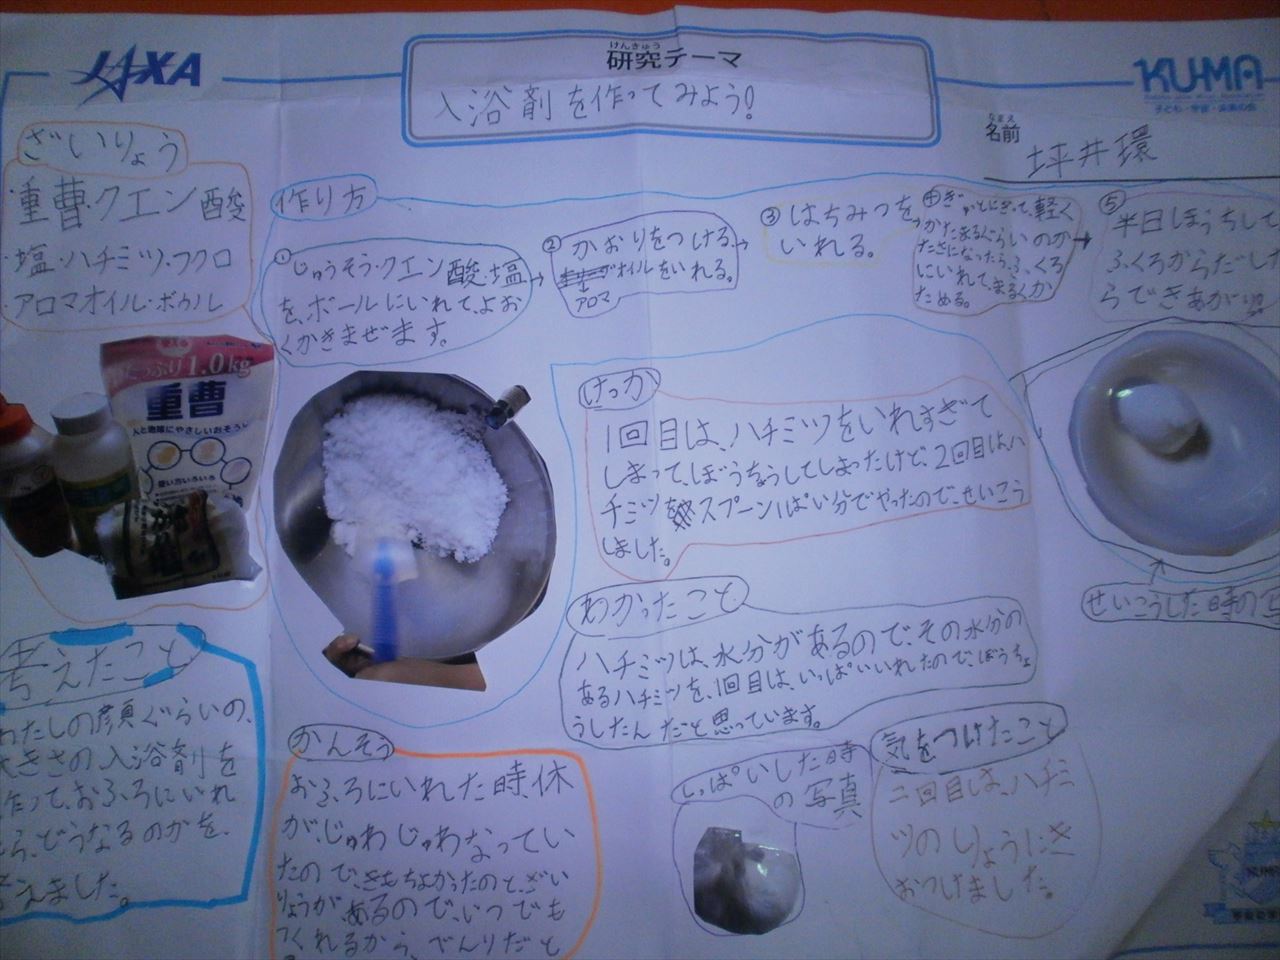 JAXA
けんきゅう
研究テーマ
入浴剤を作ってみよう!
KU-MA
子ども・宇宙・未来の会
なまえ
名前
坪井環
ざいりょう
・重曹・クエン酸
・塩・ハチミツ・フクロ
・アロマオイル・ボウル
作り方
①じゅうそう・クエン酸・塩
を、ボールにいれてよお
くかきまぜます。
② かおりをつける。
オイルをいれる。
アロマ
③ はちみつを
いれる。
④ぎゅっとにぎって、軽く
かたまるぐらいのか
たさになったら、ふくろ
にいれて、まるくか
ためる。
⑤
半日ほうちして
ふくろからだした
らできあがり
たっぷり1.0kg
重曹
人と地球にやさしいおそうじ
使い方いろいろ
けっか
1回目は、ハチミツをいれすぎて
しまって、ぼうちょうしてしまったけど、2回目は、ハ
チミツをスプーン1ぱい分でやったので、せいこう
しました。
せいこうした時の写
わかったこと
ハチミツは、水分があるので、その水分の
あるハチミツを、1回目は、いっぱいいれたので、ぼうちょ
うしたんだと思っています。
考えたこと
わたしの顔ぐらいの、
大きさの入浴剤を
作って、おふろにいれ
たら、どうなるのかを、
考えました。
かんそう
おふろにいれた時、体
が、じゅわじゅわなってい
たので、きもちよかったのと、ざい
りょうが、あるので、いつでも
つくれるから、べんりだと
しっぱいした時
の写真
気をつけたこと
二回目は、ハチミ
ツのりょうにき
おつけました。
KUMA